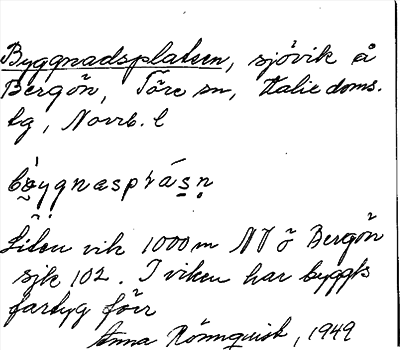 Byggnadsplatsen, sjövik å
Bergön, Töre sn, Kalix doms.
lg, Norrb. l
Liten vik 1000 m NV ö Bergön
sjk 102. I viken har byggts
fartyg förr
Anna Rönnquist, 1949